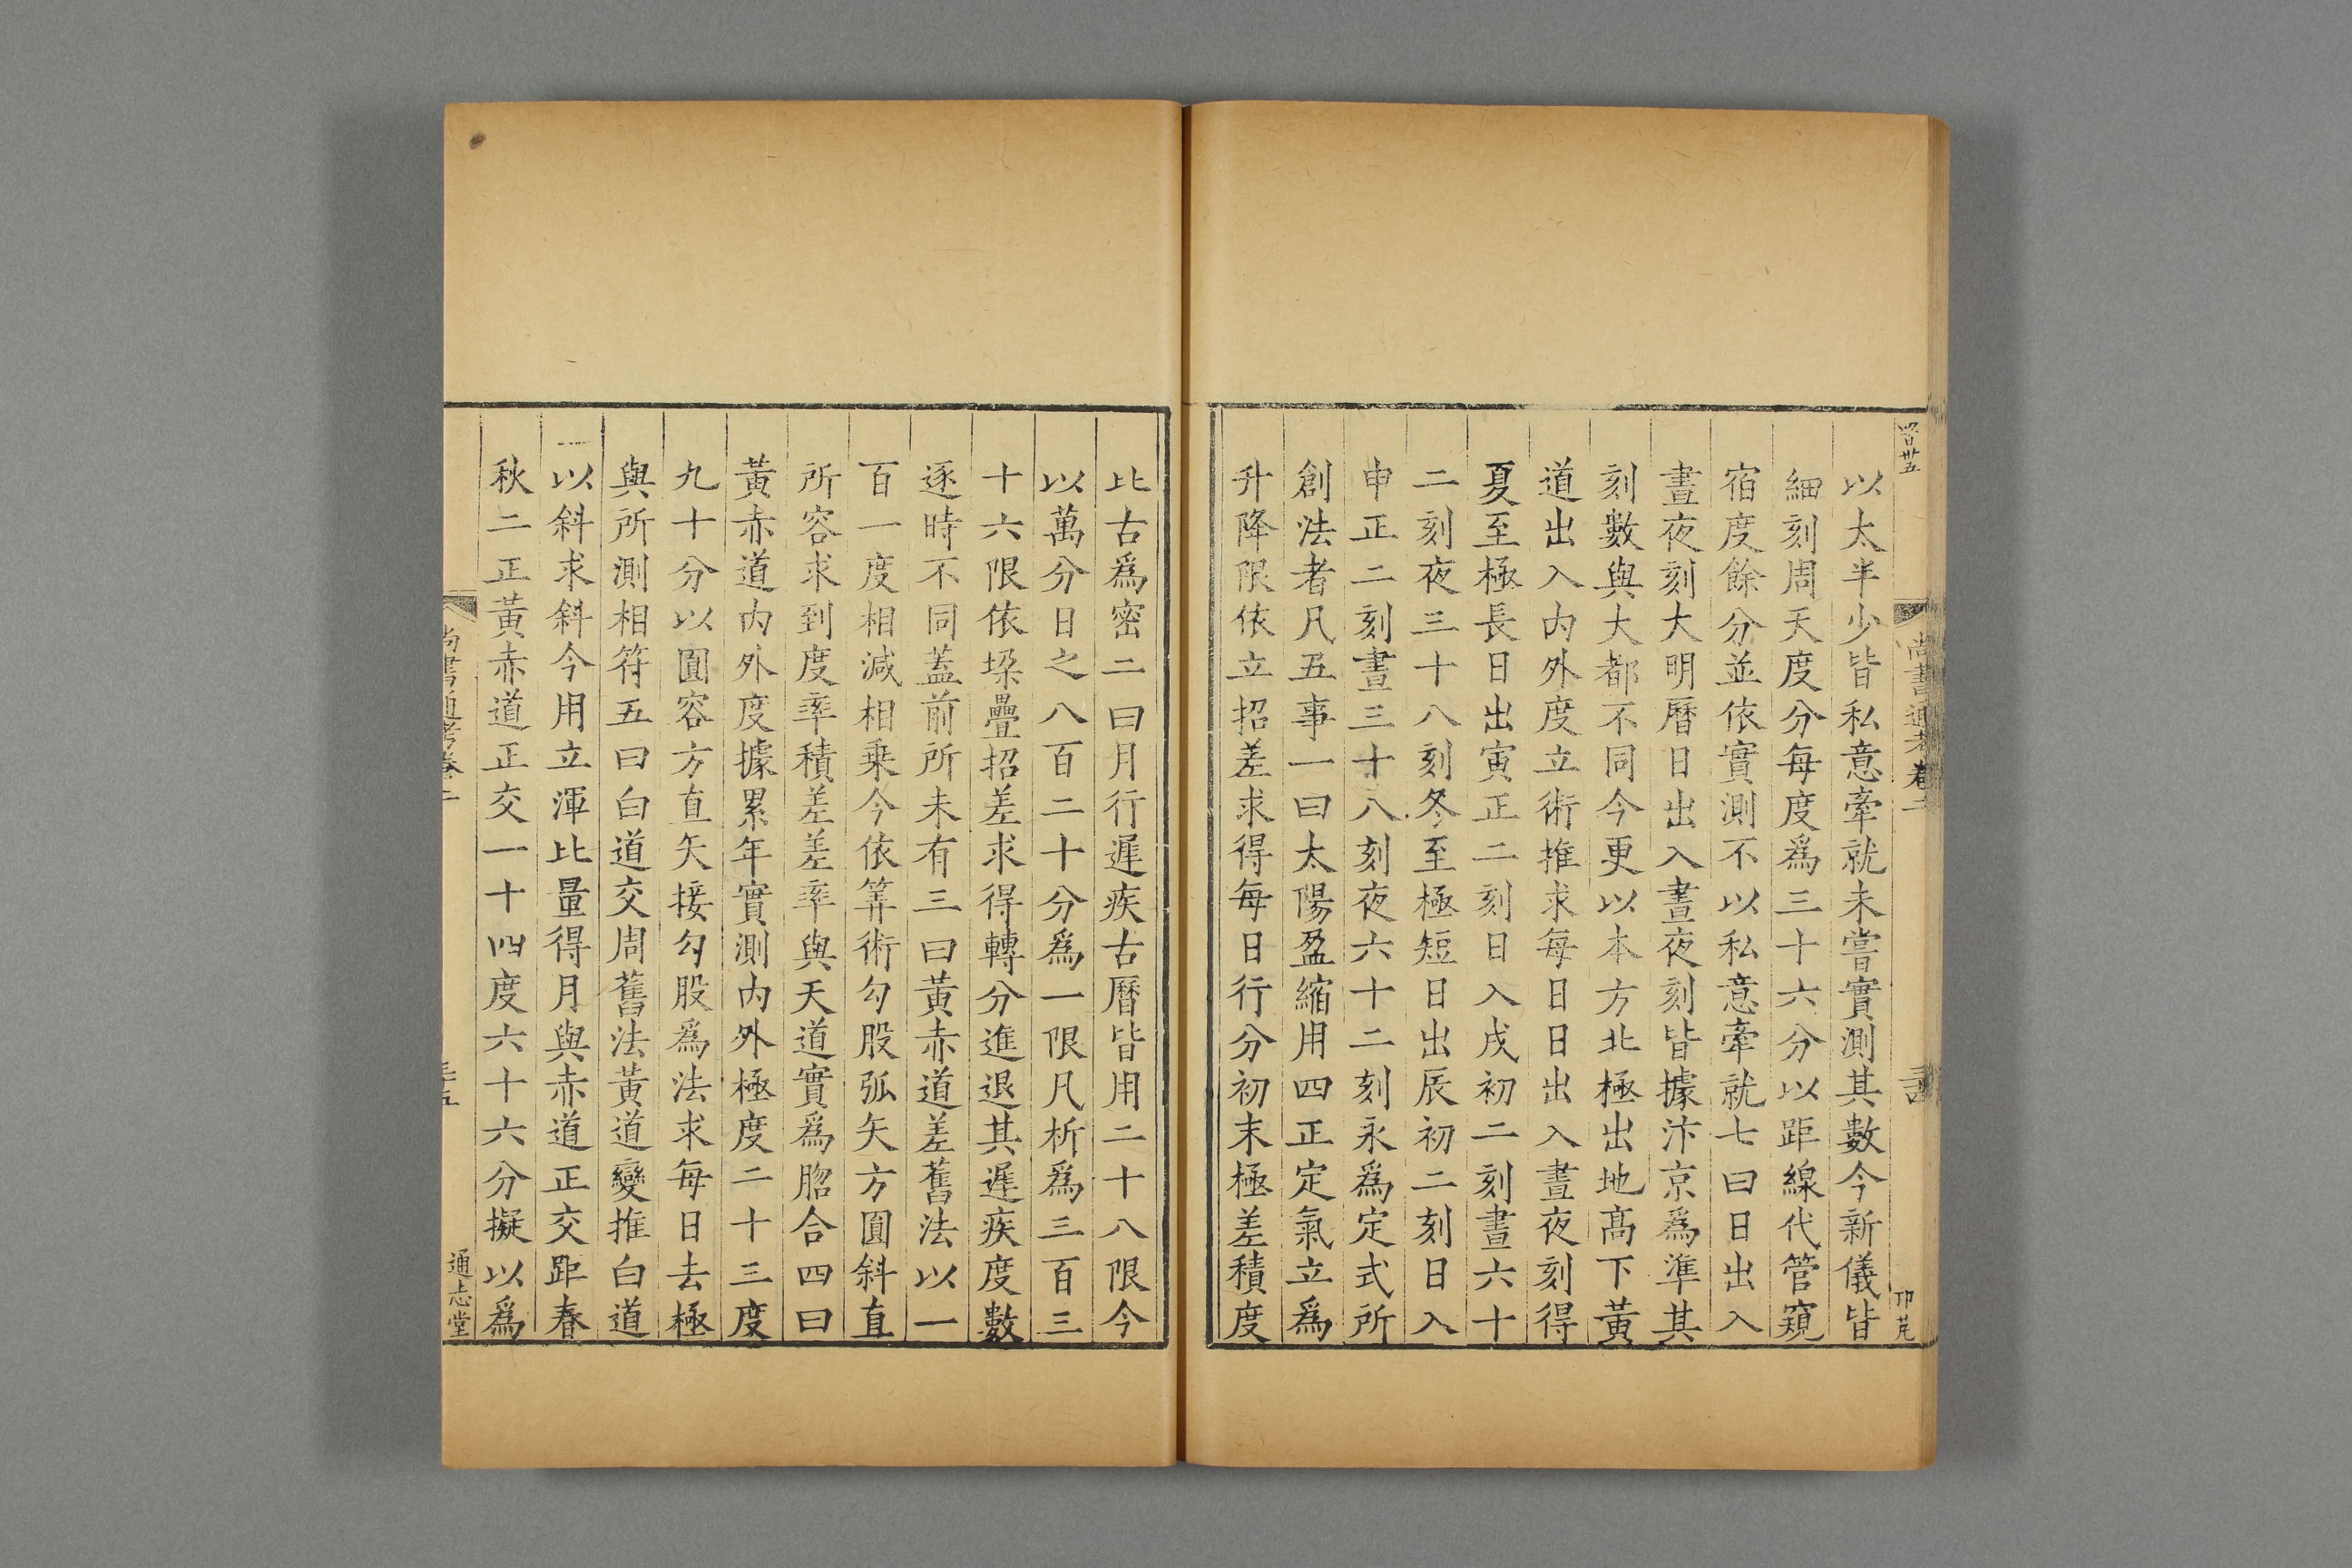 以太半少皆私意牽就未嘗實測其數今新儀皆
細刻周天度分每度爲三十六分以距線代管窺
宿度餘分並依實測不以私意牽就七曰日出入
晝夜刻大明曆日出入晝夜刻皆據汴京爲準其
刻數與大都不同今更以本方北極出地髙下黃
道出入内外度立術推求每日日出入晝夜刻得
夏至極長日出寅正二刻日入戌初二刻晝六十
二刻夜三十八刻冬至極短日出辰初二刻日入
申正二刻晝三十八刻夜六十二刻永爲定式所
創法者凡五事一曰太陽盈縮用四正定氣立爲
升降限依立招差求得每日行分初末極差積度
比古爲密二曰月行遲疾古曆皆用二十八限今
以萬分日之八百二十分爲一限凡析爲三百三
十六限依垜疊招差求得轉分進退其遲疾度數
逐時不同蓋前所未有三曰黃赤道差舊法以一
百一度相減相乗今依筭術勾股弧矢方圓斜直
所容求到度率積差差率與天道實爲脗合四曰
黃赤道内外度據累年實測内外極度二十三度
九十分以圓容方直矢接勾股爲法求每日去極
與所測相符五曰白道交周舊法黃道變推白道
以斜求斜今用立渾比量得月與赤道正交距春
秋二正黃赤道正交一十四度六十六分擬以爲
尚書通考卷二
通志堂